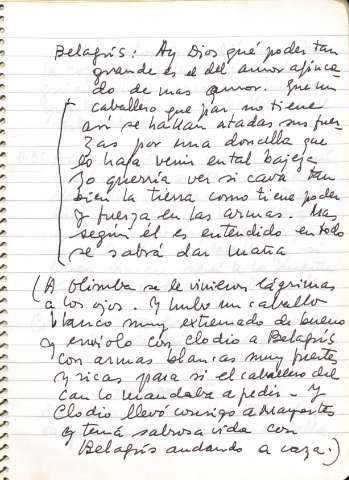 Belagrís: Ay Dios qué poder tan
grande es el del amor
do de mas amor. Que un
caballero que par no tiene
así se hallan atadas sus fuer-
zas por una doncella que
lo haga venir en tal bajeza
Yo querría ver si cava tan
bien la tierra como tiene poder
y fuerza en las armas. Mas
según él es entendido en todo
se sabrá dar maña
(A Olimba se le vinieron lágrimas
a los ojos. Y hubo un caballo
blanco muy extremado de bueno
y enviolo con Clodio a Belagrís
con armas blancas muy fuertes
y ricas para si el caballero del
can lo mandaba a pedir. Y
Clodio llevó consigo a Mayortes
y tenía sabrosa vida con
Belagrís andando a caza.)